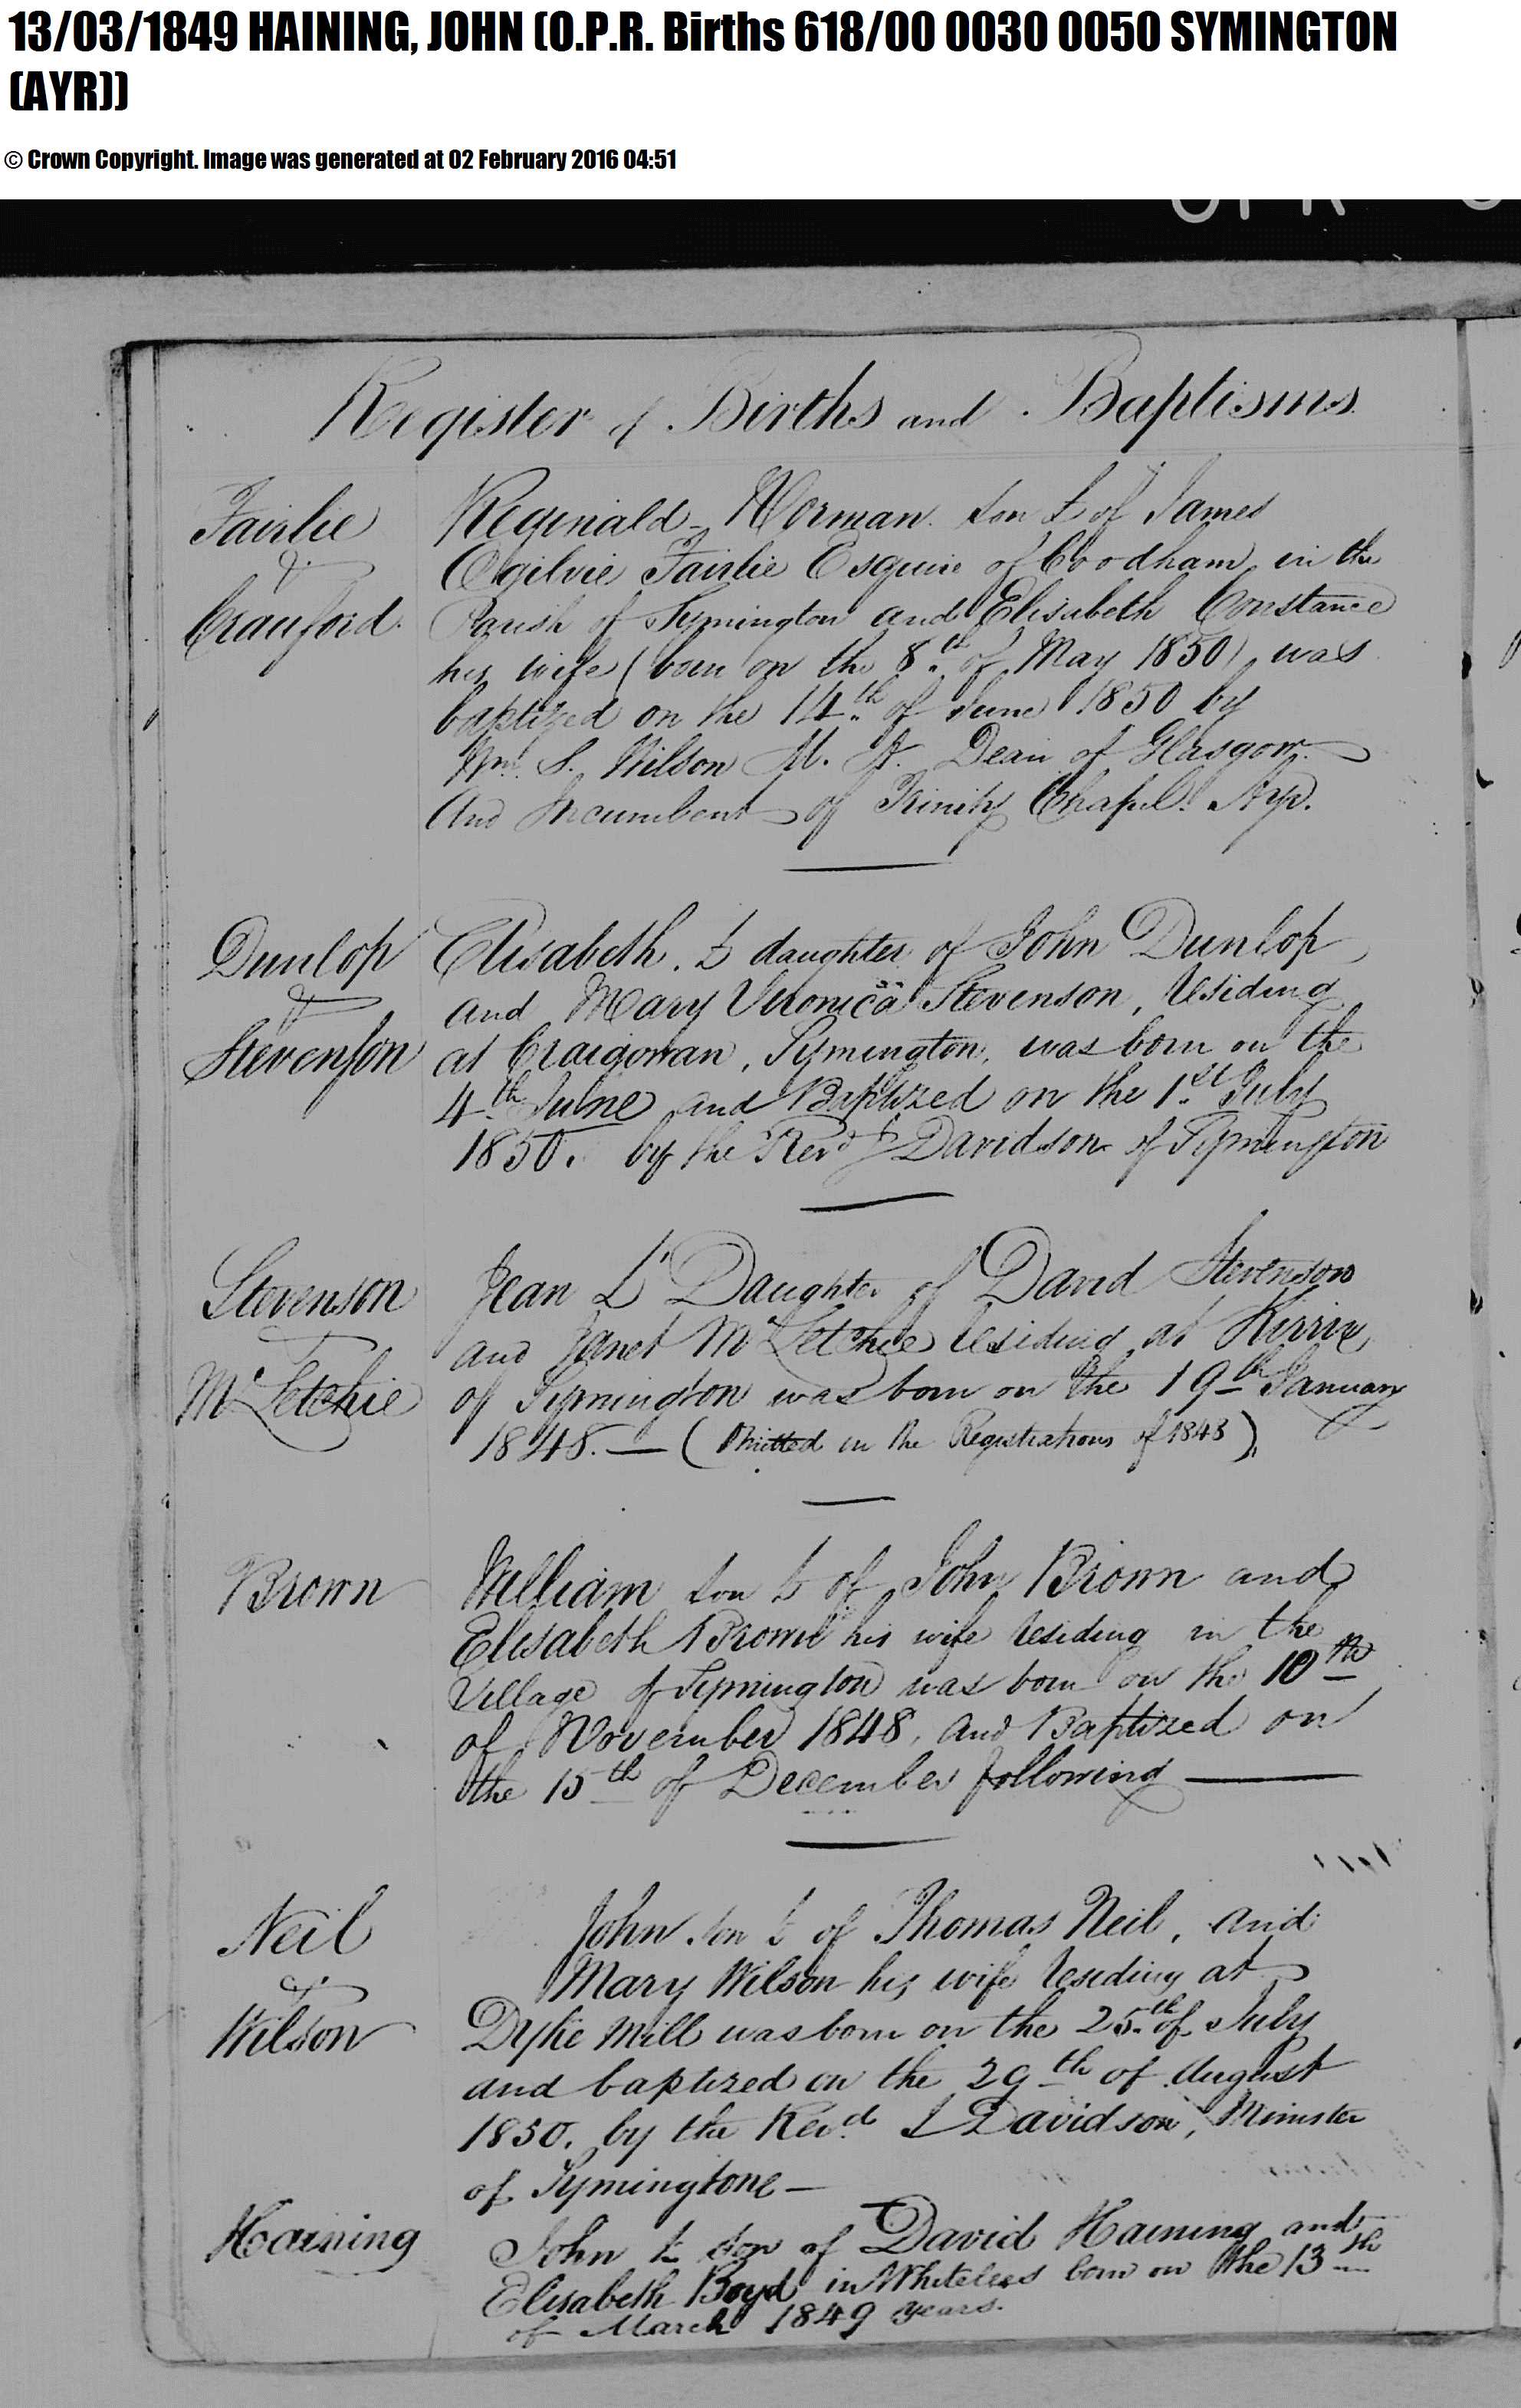 13/03/1849 HAINING, JOHN (O.P.R. Births 618/00 0030 0050 SYMINGTON
(AYR))
© Crown Copyright. Image was generated at 02 February 2016 04:51
OPR
Register of Births and Baptisms
Fairlie
&
Crauford
Reginald Norman son L of James
Ogilvie Fairlie Esquire of Coodham in the
Parish of Symington and Elisabeth Constance
his wife (born on the 8th of May 1850) was
baptized on the 14th of June 1850 by
Wm. S. Wilson M. A. Dean of Glasgow
And Incumbent of Trinity Chapel Ayr.
Dunlop
&
Stevenson
Elisabeth. L daughter of John Dunlop
and Mary Veronica Stevenson, residing
at Craigowan, Symington, was born on the
4th June and Baptized on the 1st July
1850. by the Revd J Davidson of Symington
Stevenson
McLetchie
Jean L Daughter of David Stevenson
and Janet McLetchie residing at Kirrix
of Symington was born on the 19th January
1848. — (Omitted in the Registrations of 1848)
Brown
William son L of John Brown and
Elisabeth Brown his wife residing in the
Village of Symington was born on the 10th
of November 1848, and Baptized on
the 15th of December following —
Neil
&
Wilson
John son L of Thomas Neil, and
Mary Wilson his wife residing at
Dyke Mill was born on the 25th of July
and baptized on the 29th of August
1850, by the Revd. J Davidson, Minister
of Symingtone —
Haining
John L son of David Haining and
Elisabeth Boyd in Whitelees born on the 13th
of March 1849 years.